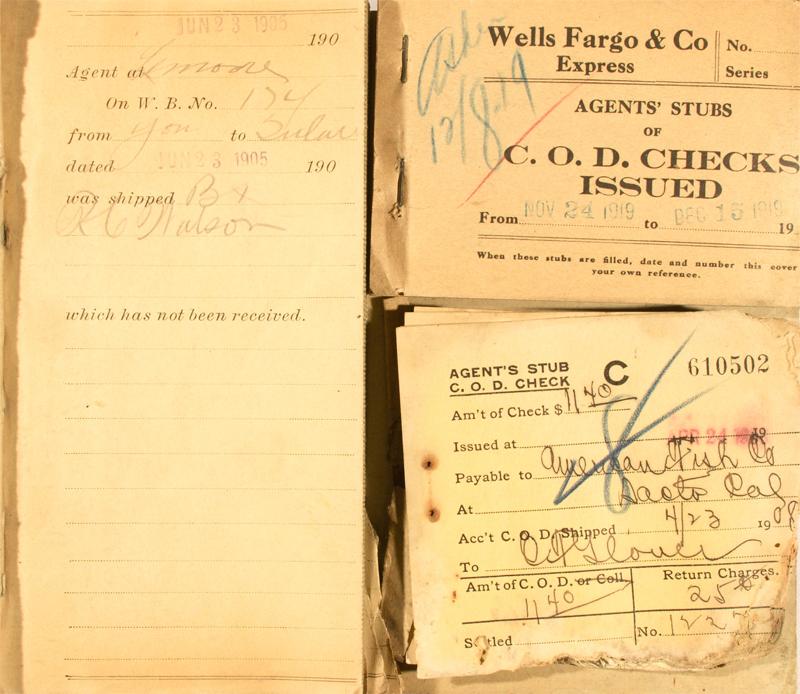 JUN 23 1905
190
Agent at
On W. B. No. 174
from you to Tular
dated JUN 23 1905 190
was shipped Bx
R C Watson
which has not been received.
12/8-19
Wells Fargo & Co
Express
No.
Series
AGENTS' STUBS
OF
C. O. D. CHECKS
ISSUED
From NOV 24 1919 to DEC 15 1919 19
When these stubs are filled, date and number this cover
your own reference.
AGENT'S STUB
C. O. D. CHECK
C
610502
Am't of Check $ 11 40
8
Issued at APR 24 19
Payable to American Fish Co
At Sacto Cal
Acc't C. O. D. Shipped 4/23 1908
To Glover
Am't of C. O. D. or Coll.
Return Charges.
11 40
25
Settled
No. 122